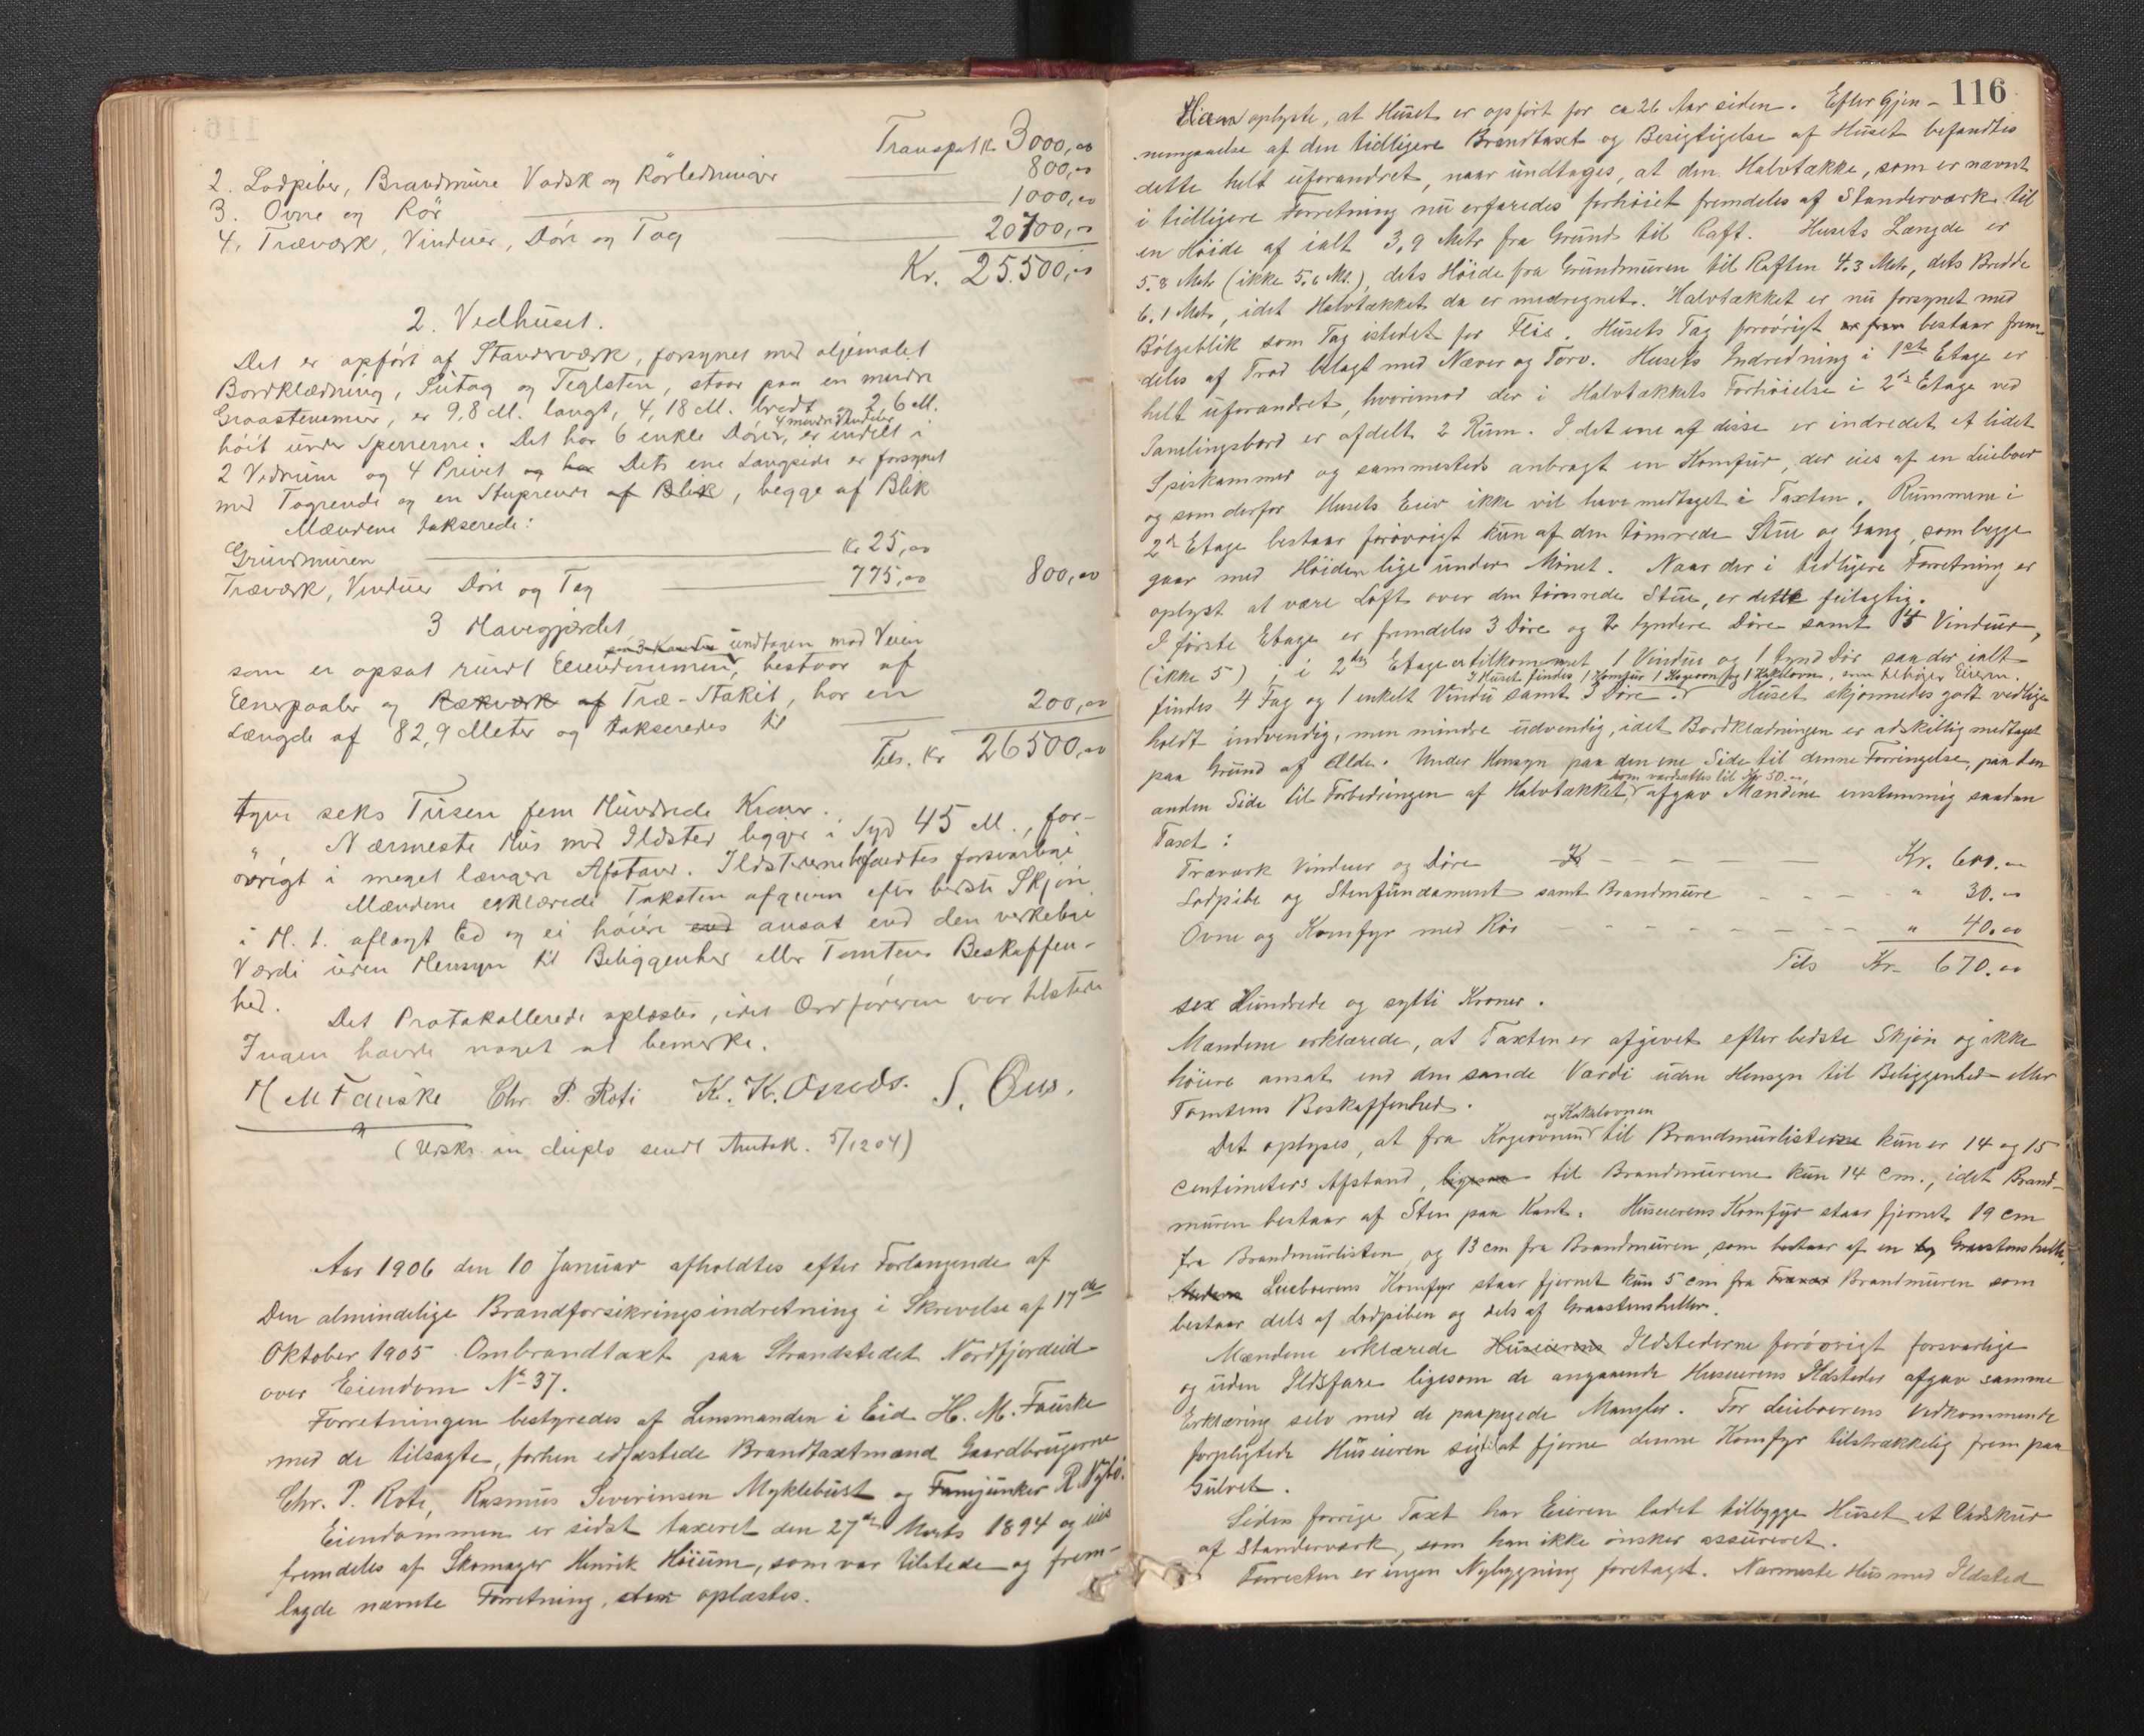 Transport Kr. 3000,00
2. Lodpiber, Brandmure Vadsk og Rörledninger 800,00
3. Ovne og Rör 1000,00
4. Træværk, Vinduer, Döre og Tag 20700,00
Kr. 25.500,00
2. Vedhuset.
Det er opfört af Standerværk, forsynet med oljemalet
Bordklædning, Sutag og Teglsten, staar paa en mindre
Graastensmur, er 9,8 M. langt, 4,18 M. bredt og 2,6 M.
4 mindre Vinduer
höit under Sperrerne. Det har 6 enkle Dörer, er indelt i
2 Vedrum og 4 Privet og har Dets ene Langside er forsynet
med Tagrende og en Stuprende af Blik, begge af Blik
Mændene takserede:
Grundmuren Kr 25,00
Træværk, Vinduer Döre og Tag 775,00 800,00
3 Havegjerdet
paa 3 Kanter undtagen mod Veien
som er opsat rundt Eiendommen, bestaar af
Enerpaaler og Rækværk af Træ-Stakit, har en
Længde af 82,9 Meter og takseredes til 200,00
Tils. Kr 26500,00
tyve seks Tusen fem Hundrede Kroner.
Nærmeste Hus med Ildsted ligger i Syd 45 M., for-
övrigt i meget længere Afstand. Ildstederne befandtes forsvarlige
Mændene erklærede Taksten afgiven efter bedste Skjön
i H. t. aflagt Ed og ei höiere end ansat end den virkelige
Værdi uden Hensyn til Beliggenhed eller Tomtens Beskaffen-
hed.
Det Protokollerede oplæstes, idet Ordföreren var tilstede
Ingen havde noget at bemerke.
H M Fauske Chr. P. Roti K. K. Osnes. S. Öus.
(Udskr. in duplo sendt Amtsk. 5/12 04)
Aar 1906 den 10 Januar afholdtes efter Forlangende af
Den almindelige Brandforsikringsindretning i Skrivelse af 17de
Oktober 1905 Ombrandtaxt paa Strandstedet Nordfjordeid
over Eiendom No 37.
Forretningen bestyredes af Lensmanden i Eid H. M. Fauske
med de tilsagte, forhen edfæstede Brandtaxtmænd Gaardbrugerne
Chr. P. Roti, Rasmus Severinsen Myklebust og Fanejunker R. Nybö.
Eiendommen er sidst taxeret den 27de Marts 1894 og eies
fremdeles af Skomager Henrik Höium, som var tilstede og frem-
lagde nævnte Forretning, der oplæstes.
116
Han oplyste, at Huset er opfört for ca 26 Aar siden. Efter Gjen-
nemgaaelse af den tidligere Brandtaxt og Besigtigelse af Huset befandtes
dette helt uforandret, naar undtages, at den Halvtække, som er nævnt
i tidligere Forretning nu erfaredes forhöiet fremdeles af Standerværk til
en Höide af ialt 3,9 Mtr fra Grund til Raft. Husets Længde er
5.8 Mtr (ikke 5,6 Mt.), dets Höide fra Grundmuren til Raften 4.3 Mtr, dets Bredde
6.1 Mtr, idet Halvtækket da er medregnet. Halvtækket er nu forsynet med
Bölgeblik som Tag istedet for Flis. Husets Tag forövrigt er frem bestaar frem-
deles af Trod belagt med Næver og Torv. Husets Indredning i 1ste Etage er
helt uforandret, hvorimod der i Halvtækkets Forhöielse i 2den Etage ved
Panelingsbord er afdelt 2 Rum. I det ene af disse er indredet et lidet
Spiskammer og sammesteds anbragt en Komfur, der eies af en Leieboer
og som derfor Husets Eier ikke vil have medtaget i Taxten. Rummene i
2den Etage bestaar forövrigt kun af den tömrede Stue og Gang, som begge
gaar med Höiden lige under Mönet. Naar der i tidligere Forretning er
oplyst at være Loft over den tömrede Stue, er dette feilagtig.
I förste Etage er fremdeles 3 Döre og 2 tyndere Döre samt 4 Vinduer,
(ikke 5); i 2den Etage er tilkommet 1 Vindue og 1 tynd Dör saa der ialt
I Huset findes 1 Komfur 1 Kogeovn og 1 Kakelovn, som tilhörer Eieren.
findes 4 Fag og 1 enkelt Vindu samt 3 Döre. Huset skjönnedes godt vedlige-
holdt indvendig, men mindre udvendig, idet Bordklædningen er adskillig medtaget
paa Grund af Ælde. Under Hensyn paa den ene Side til denne Forringelse, paa den
som værdsattes til Kr 50.00,
anden Side til Forbedringen af Halvtækket, afgav Mændene enstemmig saadan
Taxt:
Træværk Vinduer og Döre Kr. 600.00
Lodpibe og Stenfundament samt Brandmure " 30.00
Ovne og Komfyr med Rör " 40.00
Tils Kr. 670.00
sex Hundrede og sytti Kroner.
Mændene erklærede, at Taxten er afgivet efter bedste Skjön og ikke
höiere ansat end den sande Værdi uden Hensyn til Beliggenhed eller
Tomtens Beskaffenhed.
og Kakelovnen
Det oplyses, at fra Kogeovnen til Brandmurlisterne kun er 14 og 15
Centimeters Afstand, ligesaa til Brandmurene kun 14 cm., idet Brand-
muren bestaar af Sten paa Kant. Huseierens Komfyr staar fjernet 19 cm
fra Brandmurlisten og 13 cm fra Brandmuren, som bestaar af en Graastenshelle,
Leieboerens Komfyr staar fjernet kun 5 cm fra Brandmuren som
bestaar dels af Lodpiben og dels af Graastensheller.
Mændene erklærede Huseierens Ildstederne forövrigt forsvarlige
og uden Ildsfare ligesom de angaaende Huseierens Ildsteder afgav samme
Erklæring selv med de paapegede Mangler. For Leieboerens Vedkommende
forpligtede Huseieren sig til at fjerne denne Komfyr tilstrækkelig frem paa
Gulvet.
Siden forrige Taxt har Eieren ladet tilbygge Huset et Vedskur
af Standerværk, som han ikke önsker assureret.
Forresten er ingen Nybygning foretaget. Nærmeste Hus med Ildsted